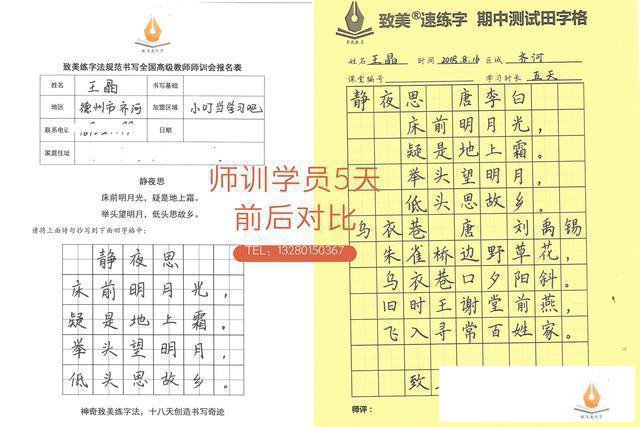 致美练字法规范书写全国高级教师师训会报名表
姓名 王晶 书写基础
地区 德州市齐河 加盟区域 小叮当学习吧
联系电话 日期
家庭住址
静夜思
床前明月光，疑是地上霜。
举头望明月，低头思故乡。
请将上面诗句抄写到下面田字格中：
静夜思
床前明月光，
疑是地上霜。
举头望明月，
低头思故乡。
神奇致美练字法，十八天创造书写奇迹
师训学员5天
前后对比
TEL：13280150367
致美®速练字 期中测试田字格
姓名 王晶 时间 2018.8.16 区域 齐河
课堂编号 学习时长 五天
静夜思 唐李白
床前明月光，
疑是地上霜。
举头望明月，
低头思故乡。
乌衣巷 唐 刘禹锡
朱雀桥边野草花，
乌衣巷口夕阳斜。
旧时王谢堂前燕，
飞入寻常百姓家。
致
师评：